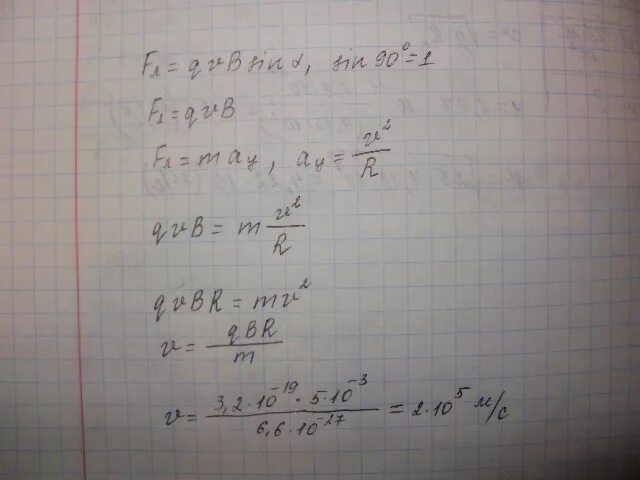 Fл = qvB sin α, sin 90° = 1
Fл = qvB
Fл = m aц, aц = v²/R
qvB = m v²/R
qvBR = mv²
v = qBR/m
v = 3,2·10⁻¹⁹ · 5·10⁻³ / 6,6·10⁻²⁷ = 2·10⁵ м/с